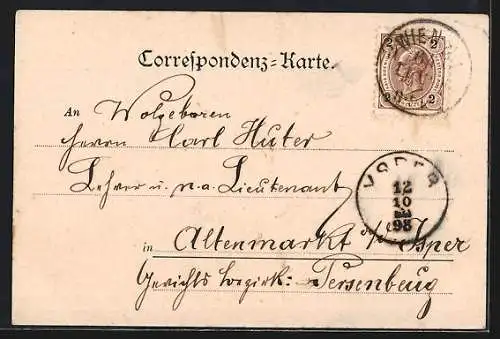 2 2
WIEN
Correspondenz-Karte.
An Wolgeboren
Herrn Karl Huter
Lehrer u. n. a. Lieutenant
YSPER
12
10
98
in Altenmarkt a/d Isper
Gerichtsbezirk: Persenbeug